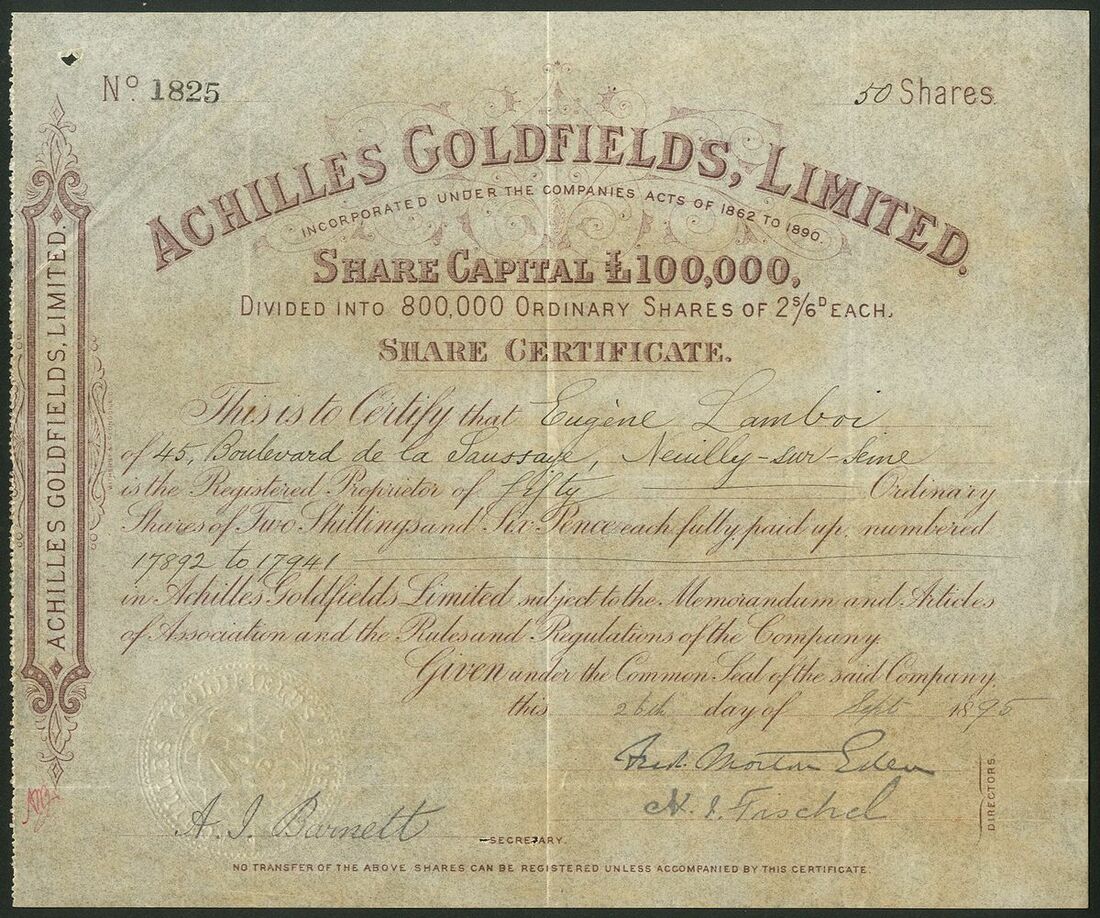 No. 1825
50 Shares.
ACHILLES GOLDFIELDS, LIMITED.
INCORPORATED UNDER THE COMPANIES ACTS OF 1862 TO 1890.
SHARE CAPITAL £100,000,
DIVIDED INTO 800,000 ORDINARY SHARES OF 2S/6D EACH.
SHARE CERTIFICATE.
This is to Certify that Eugène Lamboi
of 45, Boulevard de la Saussaye, Neuilly-sur-Seine
is the Registered Proprietor of fifty Ordinary
Shares of Two Shillings and Six Pence each fully paid up, numbered
17892 to 17941
in Achilles Goldfields Limited subject to the Memorandum and Articles
of Association and the Rules and Regulations of the Company.
Given under the Common Seal of the said Company
this 26th day of Sept 1895
Fred. Morton Eden
N. J. Fischel
DIRECTORS.
A. J. Barnett
SECRETARY.
NO TRANSFER OF THE ABOVE SHARES CAN BE REGISTERED UNLESS ACCOMPANIED BY THIS CERTIFICATE.
ACHILLES GOLDFIELDS, LIMITED.